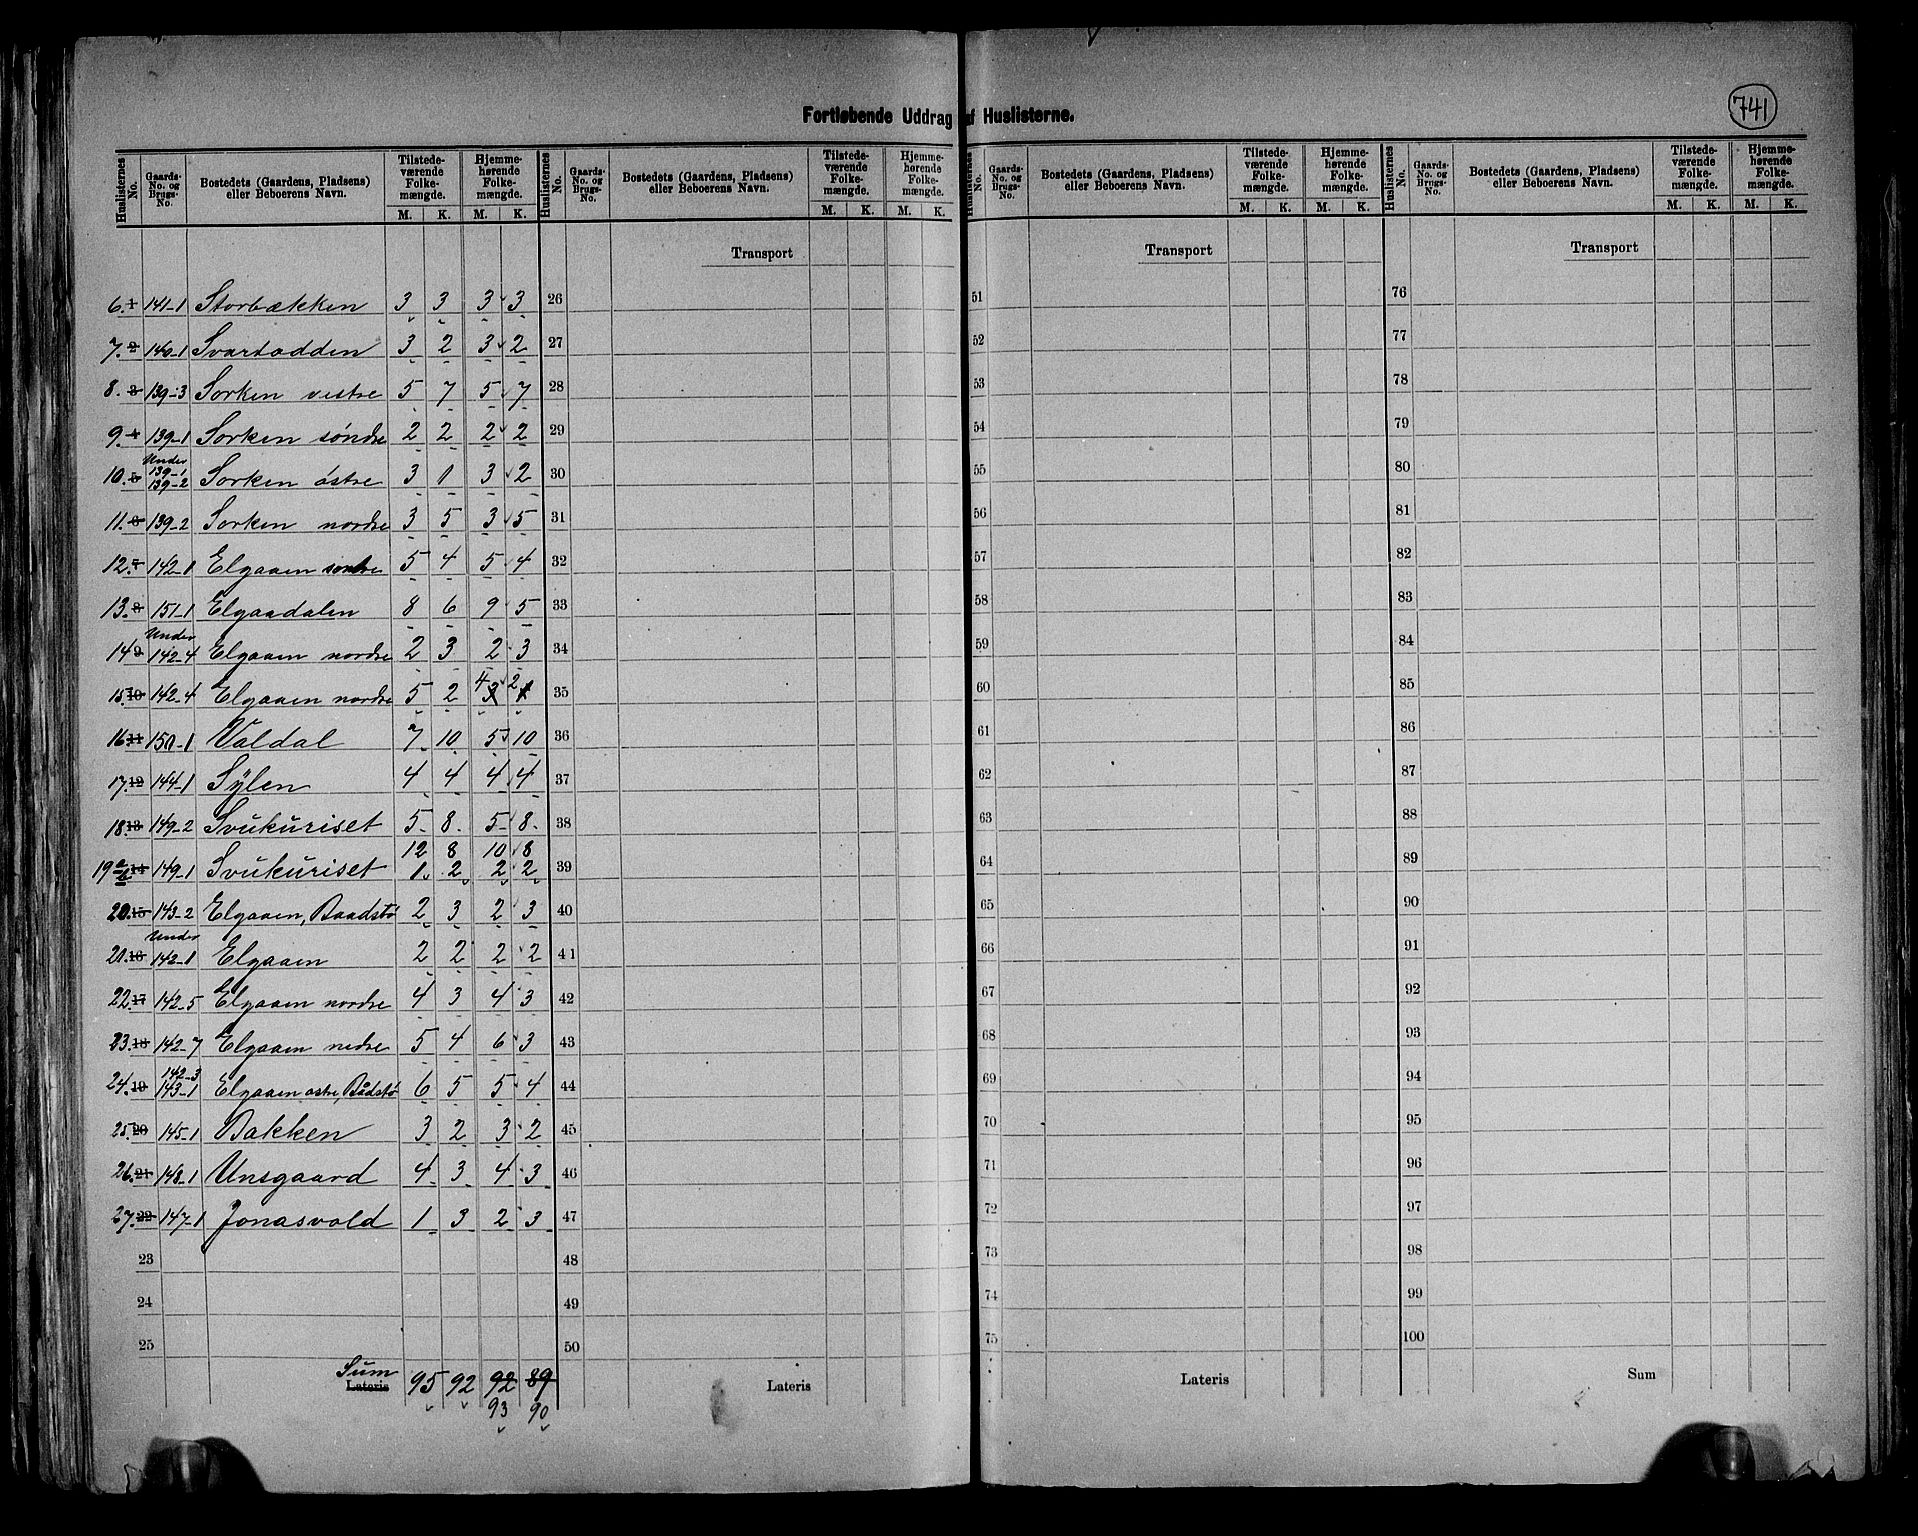 741
Fortløbende Uddrag af Huslisterne.
Huslisternes No. | Gaards-No. og Brugs-No. | Bostedets (Gaardens, Pladsens) eller Beboerens Navn. | Tilstedeværende Folkemængde. M. K. | Hjemmehørende Folkemængde. M. K.
Huslisternes No. | Gaards-No. og Brugs-No. | Bostedets (Gaardens, Pladsens) eller Beboerens Navn. | Tilstedeværende Folkemængde. M. K. | Hjemmehørende Folkemængde. M. K.
Huslisternes No. | Gaards-No. og Brugs-No. | Bostedets (Gaardens, Pladsens) eller Beboerens Navn. | Tilstedeværende Folkemængde. M. K. | Hjemmehørende Folkemængde. M. K.
Huslisternes No. | Gaards-No. og Brugs-No. | Bostedets (Gaardens, Pladsens) eller Beboerens Navn. | Tilstedeværende Folkemængde. M. K. | Hjemmehørende Folkemængde. M. K.
Transport Transport Transport
6. 1 141-1 Storbækken 3 3 3 3 26 51 76
7. 2 140-1 Svartodden 3 2 3 2 27 52 77
8. 3 139-3 Sorken vestre 5 7 5 7 28 53 78
9. 4 139-1 Sorken søndre 2 2 2 2 29 54 79
10. 5 Under 139-1 139-2 Sorken østre 3 1 3 2 30 55 80
11. 6 139-2 Sorken nordre 3 5 3 5 31 56 81
12. 7 142-1 Elgaaen søndre 5 4 5 4 32 57 82
13. 8 151-1 Elgaadalen 8 6 9 5 33 58 83
14 9 Under 142-4 Elgaaen nordre 2 3 2 3 34 59 84
15. 10 142-4 Elgaaen nordre 5 2 4 3 2 1 35 60 85
16. 11 150-1 Valdal 7 10 5 10 36 61 86
17. 12 144-1 Sylen 4 4 4 4 37 62 87
18. 13 149-2 Svukuriset 5 8 5 8 38 63 88
12 8 10 8
19 a/b 14 149-1 Svukuriset 1 2 2 2 39 64 89
20. 15 143-2 Elgaaen, Baadstø 2 3 2 3 40 65 90
21. 16 Under 142-1 Elgaaen 2 2 2 2 41 66 91
22. 17 142-5 Elgaaen nordre 4 3 4 3 42 67 92
23. 18 142-7 Elgaaen nedre 5 4 6 3 43 68 93
24. 19 142-3 143-1 Elgaaen østre, Bådstø 6 5 5 4 44 69 94
25. 20 145-1 Bakken 3 2 3 2 45 70 95
26. 21 148-1 Unsgaard 4 3 4 3 46 71 96
27. 22 147-1 Jonasvold 1 3 2 3 47 72 97
23 48 73 98
24 49 74 99
25 50 75 100
Sum
Lateris 95 92 92 89 Lateris Lateris Sum
93 90